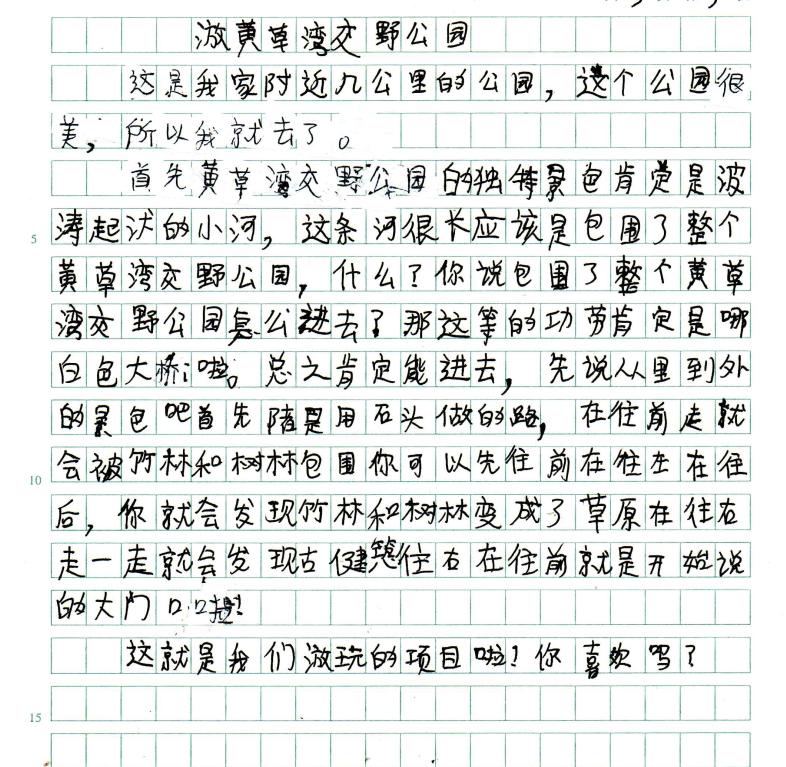 游黄草湾交野公园
这是我家附近几公里的公园，这个公园很
美，所以我就去了。
首先黄草湾交野公园的独特景色肯定是波
涛起伏的小河，这条河很长应该是包围了整个
黄草湾交野公园，什么？你说包围了整个黄草
湾交野公园怎么进去？那这等的功劳肯定是哪
白色大桥啦。总之肯定能进去，先说从里到外
的景色吧首先陪是用石头做的路，在往前走就
会被竹林和树林包围你可以先往前在往左在往
后，你就会发现竹林和树林变成了草原在往右
走一走就会发现古健往右在往前就是开始说
的大门口
这就是我们游玩的项目啦！你喜欢吗？
5
10
15